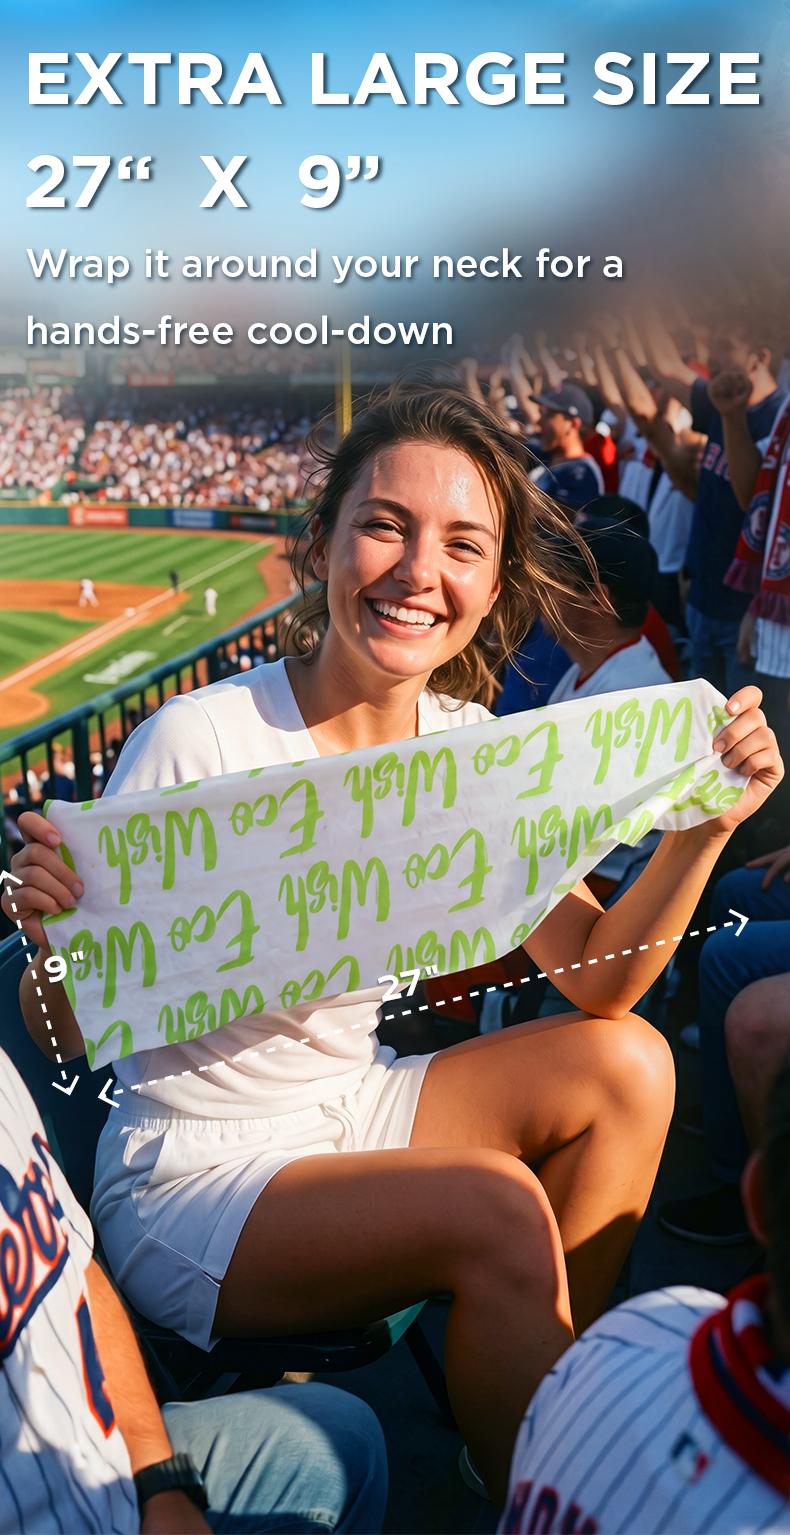 EXTRA LARGE SIZE
27“ X 9”
Wrap it around your neck for a
hands-free cool-down
Wish Eco Wish Eco Wish
Eco Wish Eco Wish
Wish Eco Wish
9"
27"